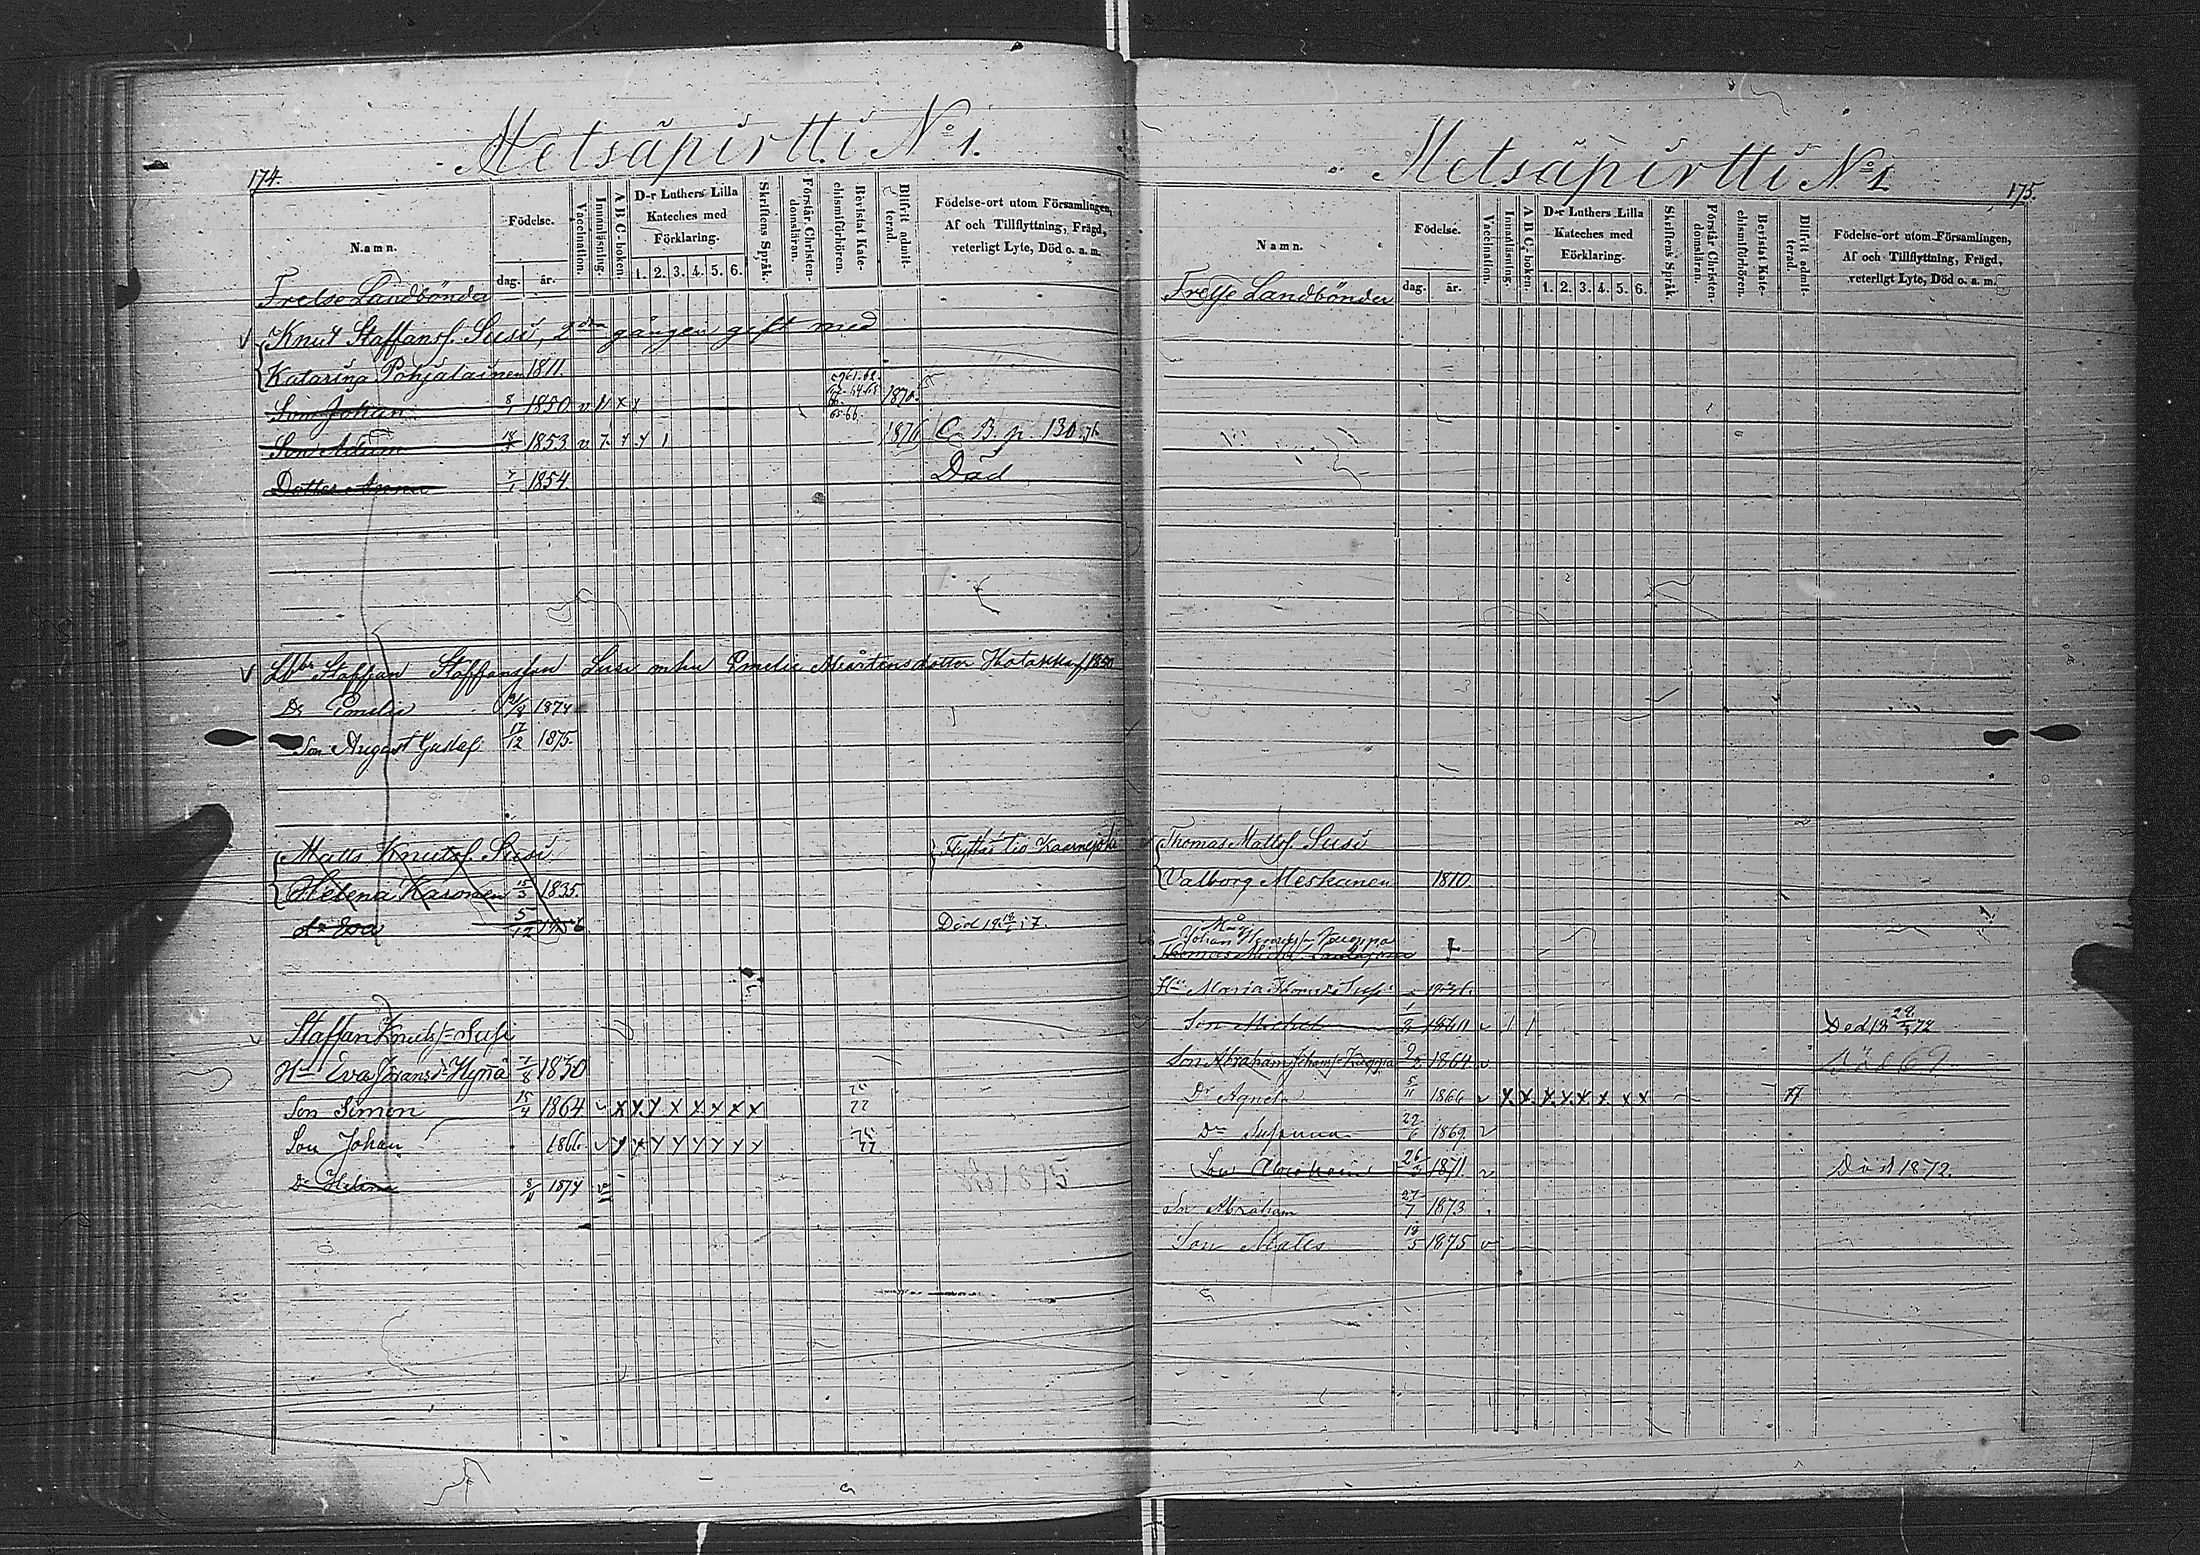 174.
Metsäpirtti No 1.
Namn.
Födelse.
dag. år.
Vaccination.
Innanläsning.
A B C-boken.
D-r Luthers Lilla Kateches med Förklaring.
1. 2. 3. 4. 5. 6.
Skriftens Språk.
Förstår Christendomsläran.
Bevistat Katechismiförhören.
Blifvit admitterad.
Födelse-ort utom Församlingen,
Af och Tillflyttning, Frägd,
veterligt Lyte, Död o. a. m.
Frelse Landbönder
Knut Staffansf. Susi, 2dra gången gift med
Katarina Pohjalainen 1811.
Son Johan 8/1 1850 v 1870.
Son Adam 18/3 1853 v 7. 1876 C. B. p. 130.76
Dotter Anna 7/1 1854 Död
Staffan Staffansson Susi Emelie Mårtensdotter 1850
Dr Emelie 1874
Son August Gustaf 17/12 1875.
Matts Knutsf. Susi
Helena Karonen 15/3 1835.
Dr Eva 5/12 1856 Död
Staffan Knuts/- Susi
Hu Eva Johansd. Hynä 7/8 1830
Son Simon 15/4 1864 v x x x x x x x x
Son Johan 1866 v
Dr Helena 8/11 1874 v
Metsäpirtti No 1
175.
Namn.
Födelse.
dag. år.
Vaccination.
Innanläsning.
A B C, boken.
D-r Luthers Lilla Kateches med Förklaring.
1. 2. 3. 4. 5. 6.
Skriftens Språk.
Förstår Christendomsläran.
Bevistat Katechismiförhören.
Blifvit admitterad.
Födelse-ort utom Församlingen,
Af och Tillflyttning, Frägd,
veterligt Lyte, Död o. a. m.
Frelse Landbönder
Thomas Mattsf. Susi
Valborg Meskanen 1810.
Johan Kuoppa
Hu Maria Thomasd. Susi
Son Michel v Död
Son Abraham Johans/- Kuoppa 9/2 1864 v
Dr Agneta 5/11 1866 v
Dr Susanna 22/6 1869 v
Son Abraham 1871. v Död 1872.
Son Abraham 27/7 1873
Son Matts 1875 v